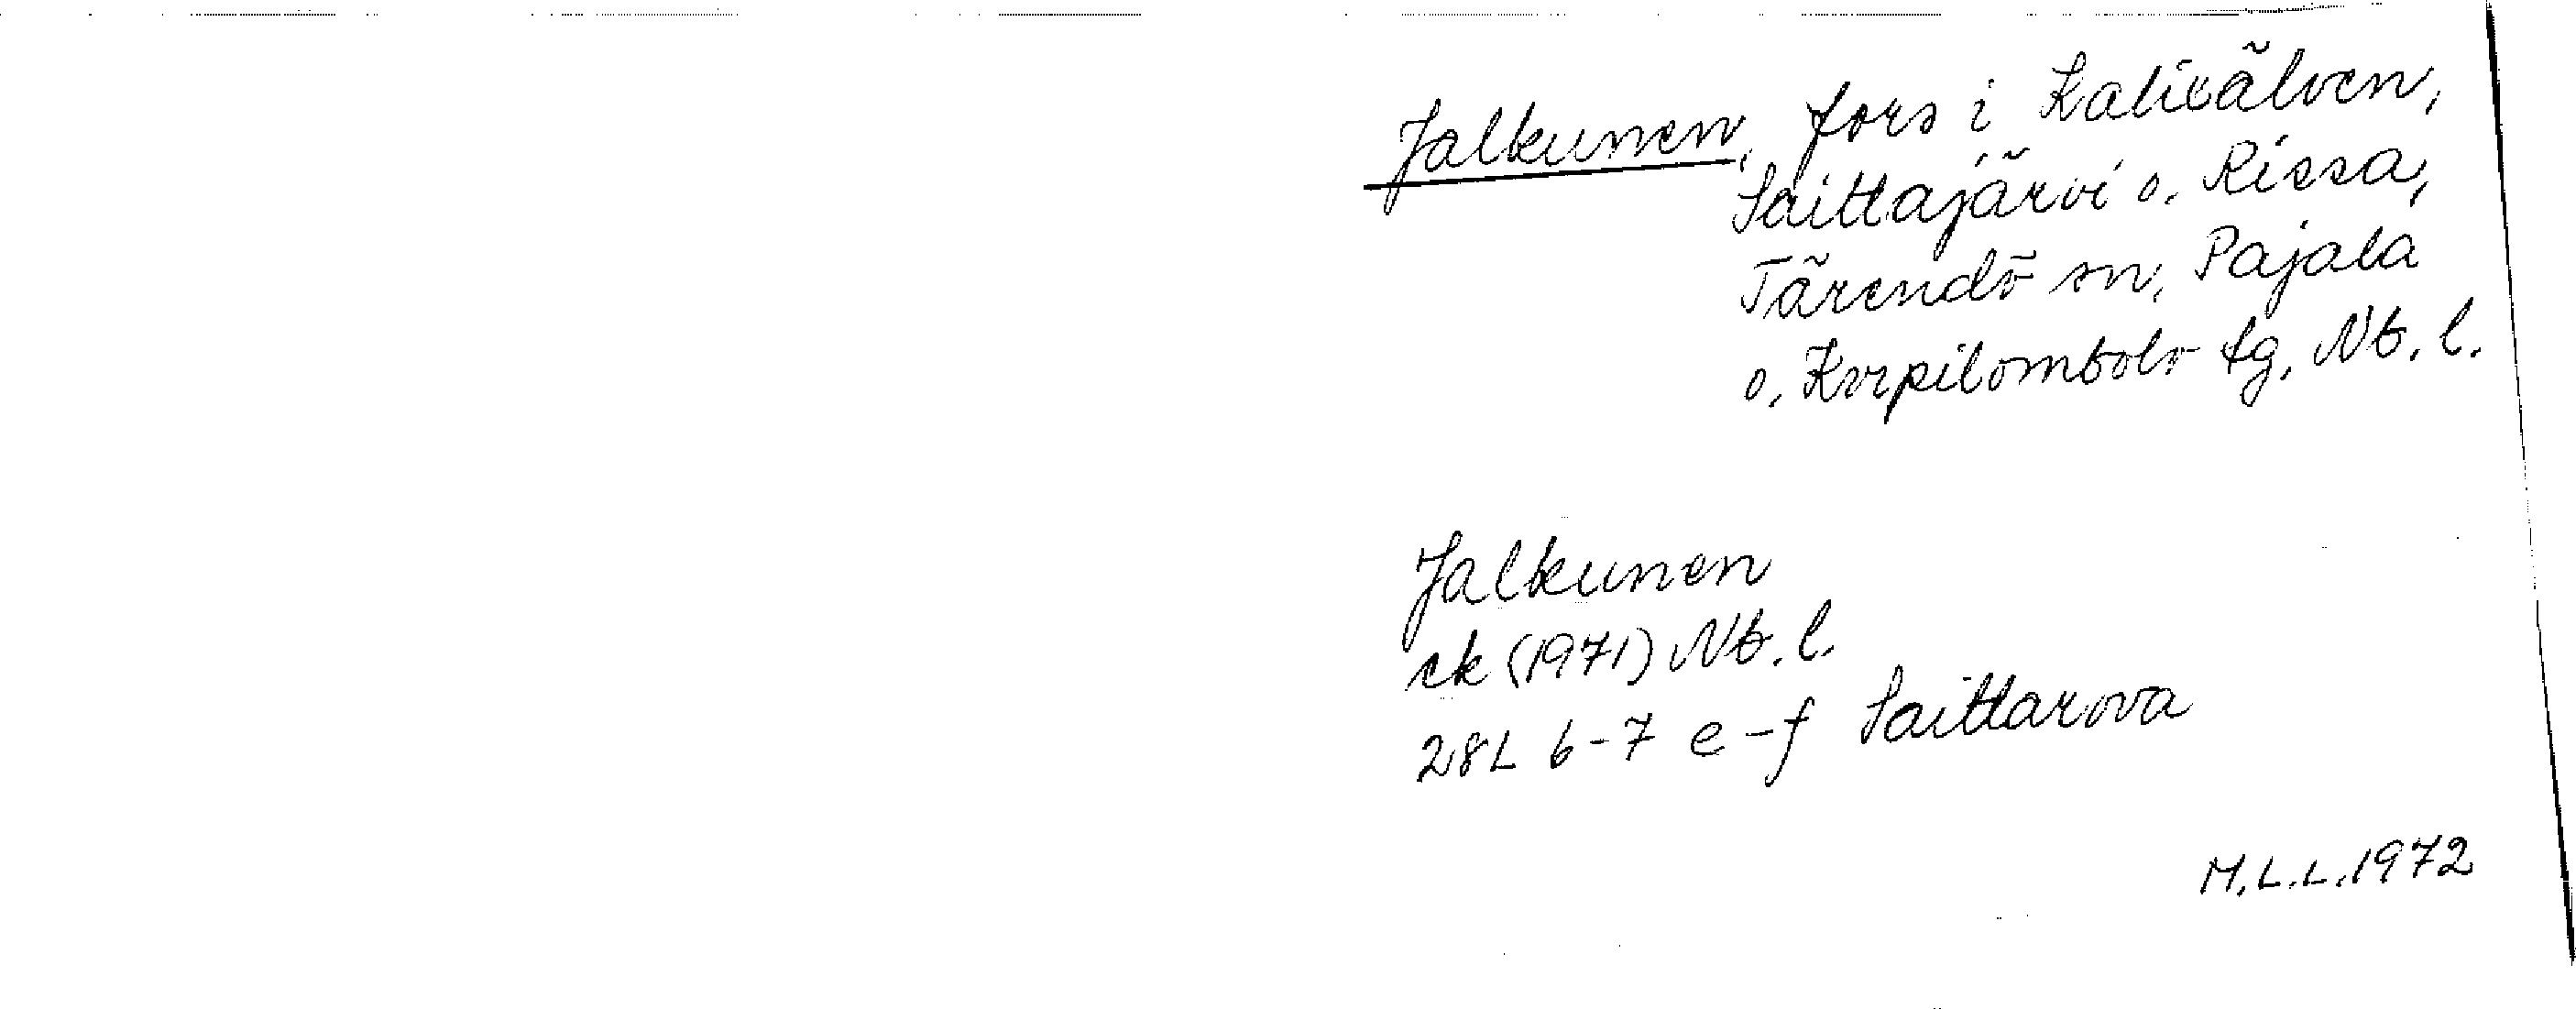 Jalkunen, fors i Kalixälven,
Saittajärvi o. Rissa,
Tärendö sn, Pajala
o. Korpilombolo tg, Nb. l.
Jalkunen
ek (1971) Nb. l.
28L 6-7 e-f Saittarova
M.L.L. 1972